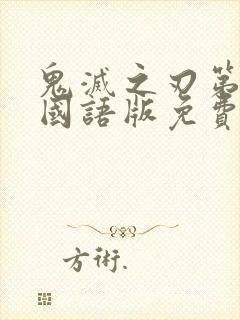 鬼滅之刃第
國語版免費
方術.